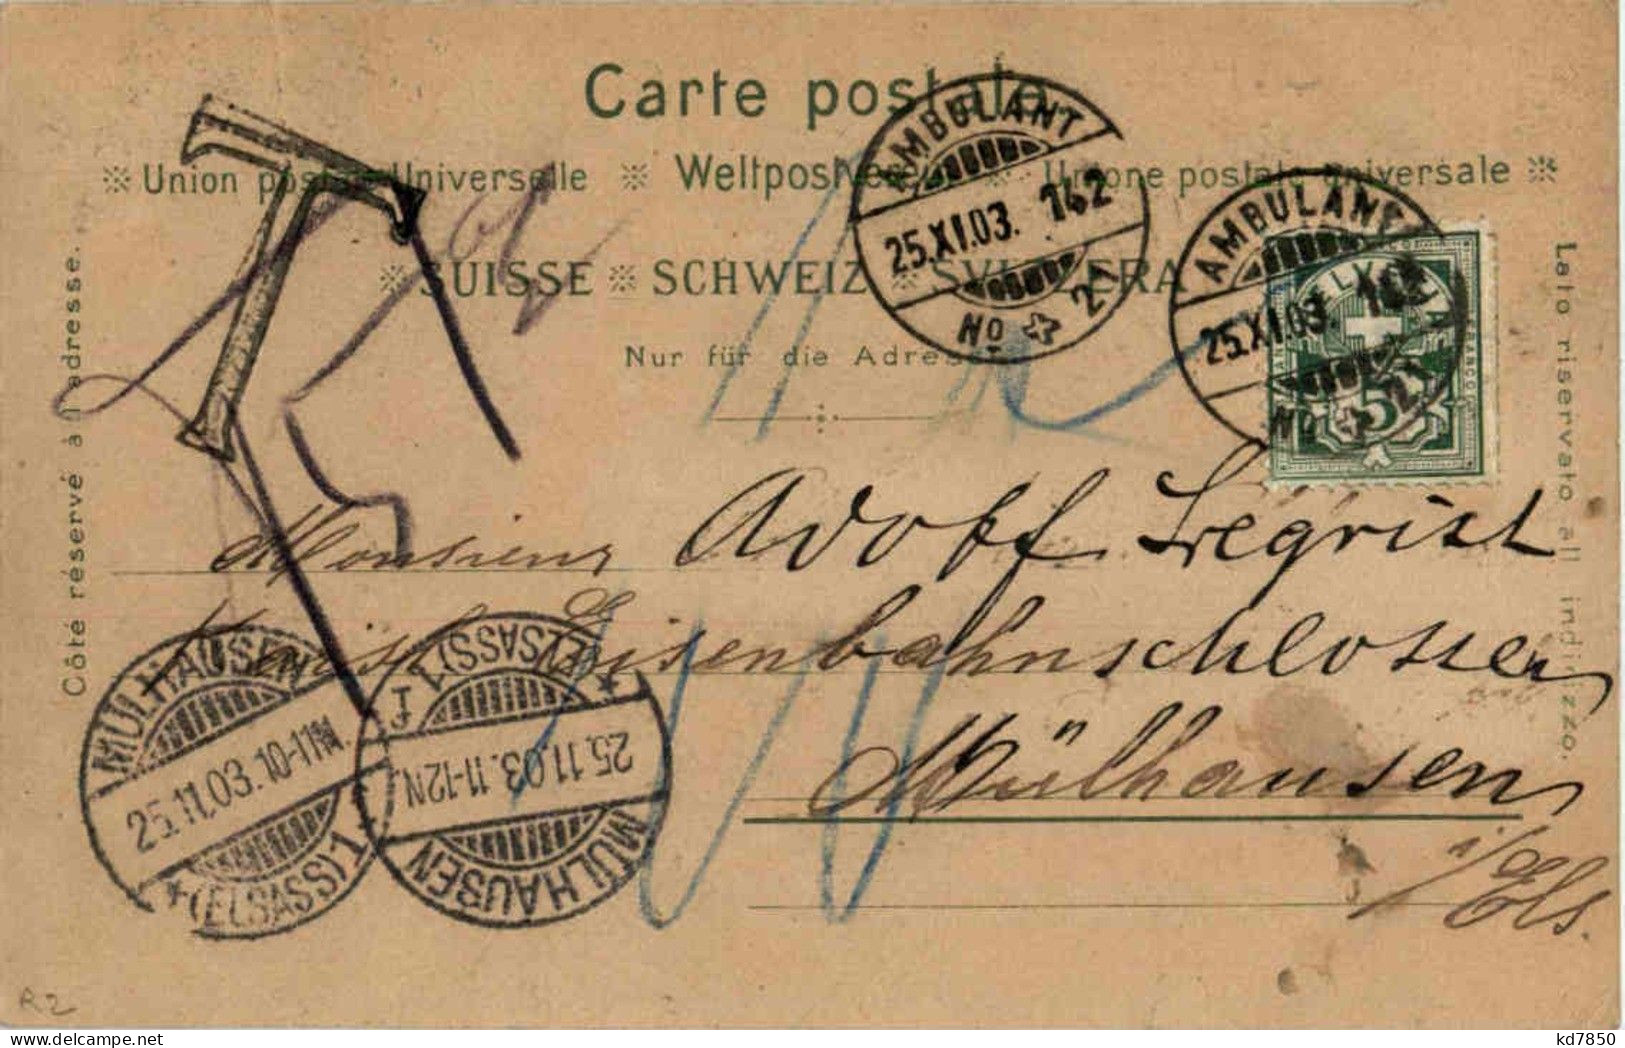 Carte postale
Union postale Universelle ※ Weltpostverein ※ Unione postale universale
SUISSE ※ SCHWEIZ ※ SVIZZERA
Nur für die Adresse
Côté réservé à l'adresse.
Lato riservato all indirizzo.
AMBULANT
25.XI.03. 142
No 21
AMBULANT
25.XI.03. 142
No 21
HELVETIA
FRANCO
5
T
Monsieur Adolf Legrist
Eisenbahnschlosser
Mülhausen
i/Els.
MÜLHAUSEN
25.11.03.10-11N.
(ELSASS) 1
MÜLHAUSEN
25.11.03.11-12N.
(ELSASS) 1
R2
kd7850